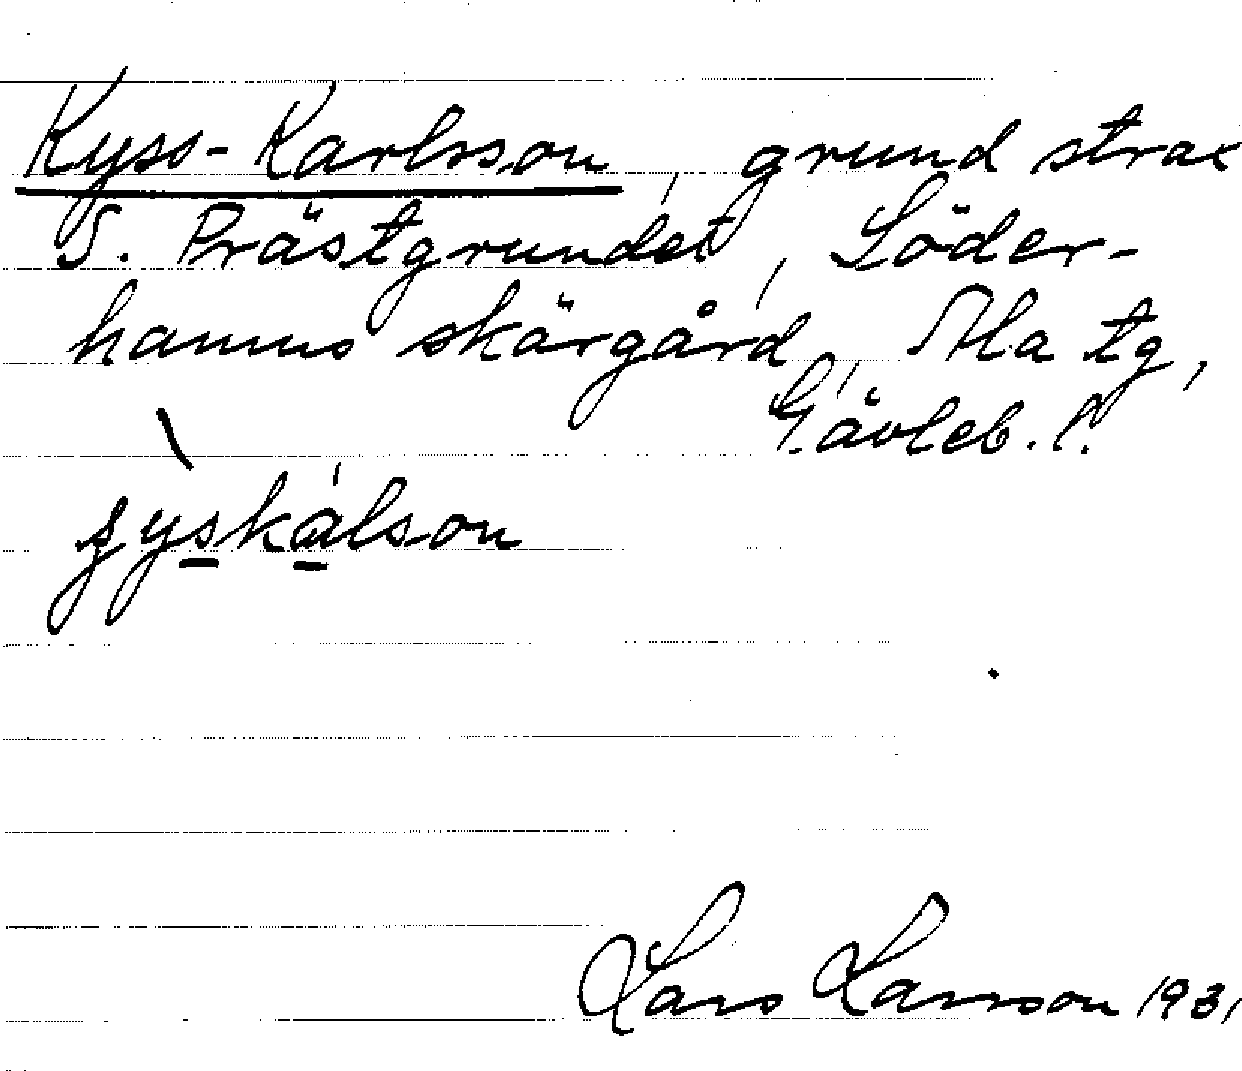 Kyss-Karlsson, grund strax
S. Prästgrundet, Söder-
hamns skärgård, Ala tg,
Gävleb. l.
ʂyskálson
Lars Larsson 1931